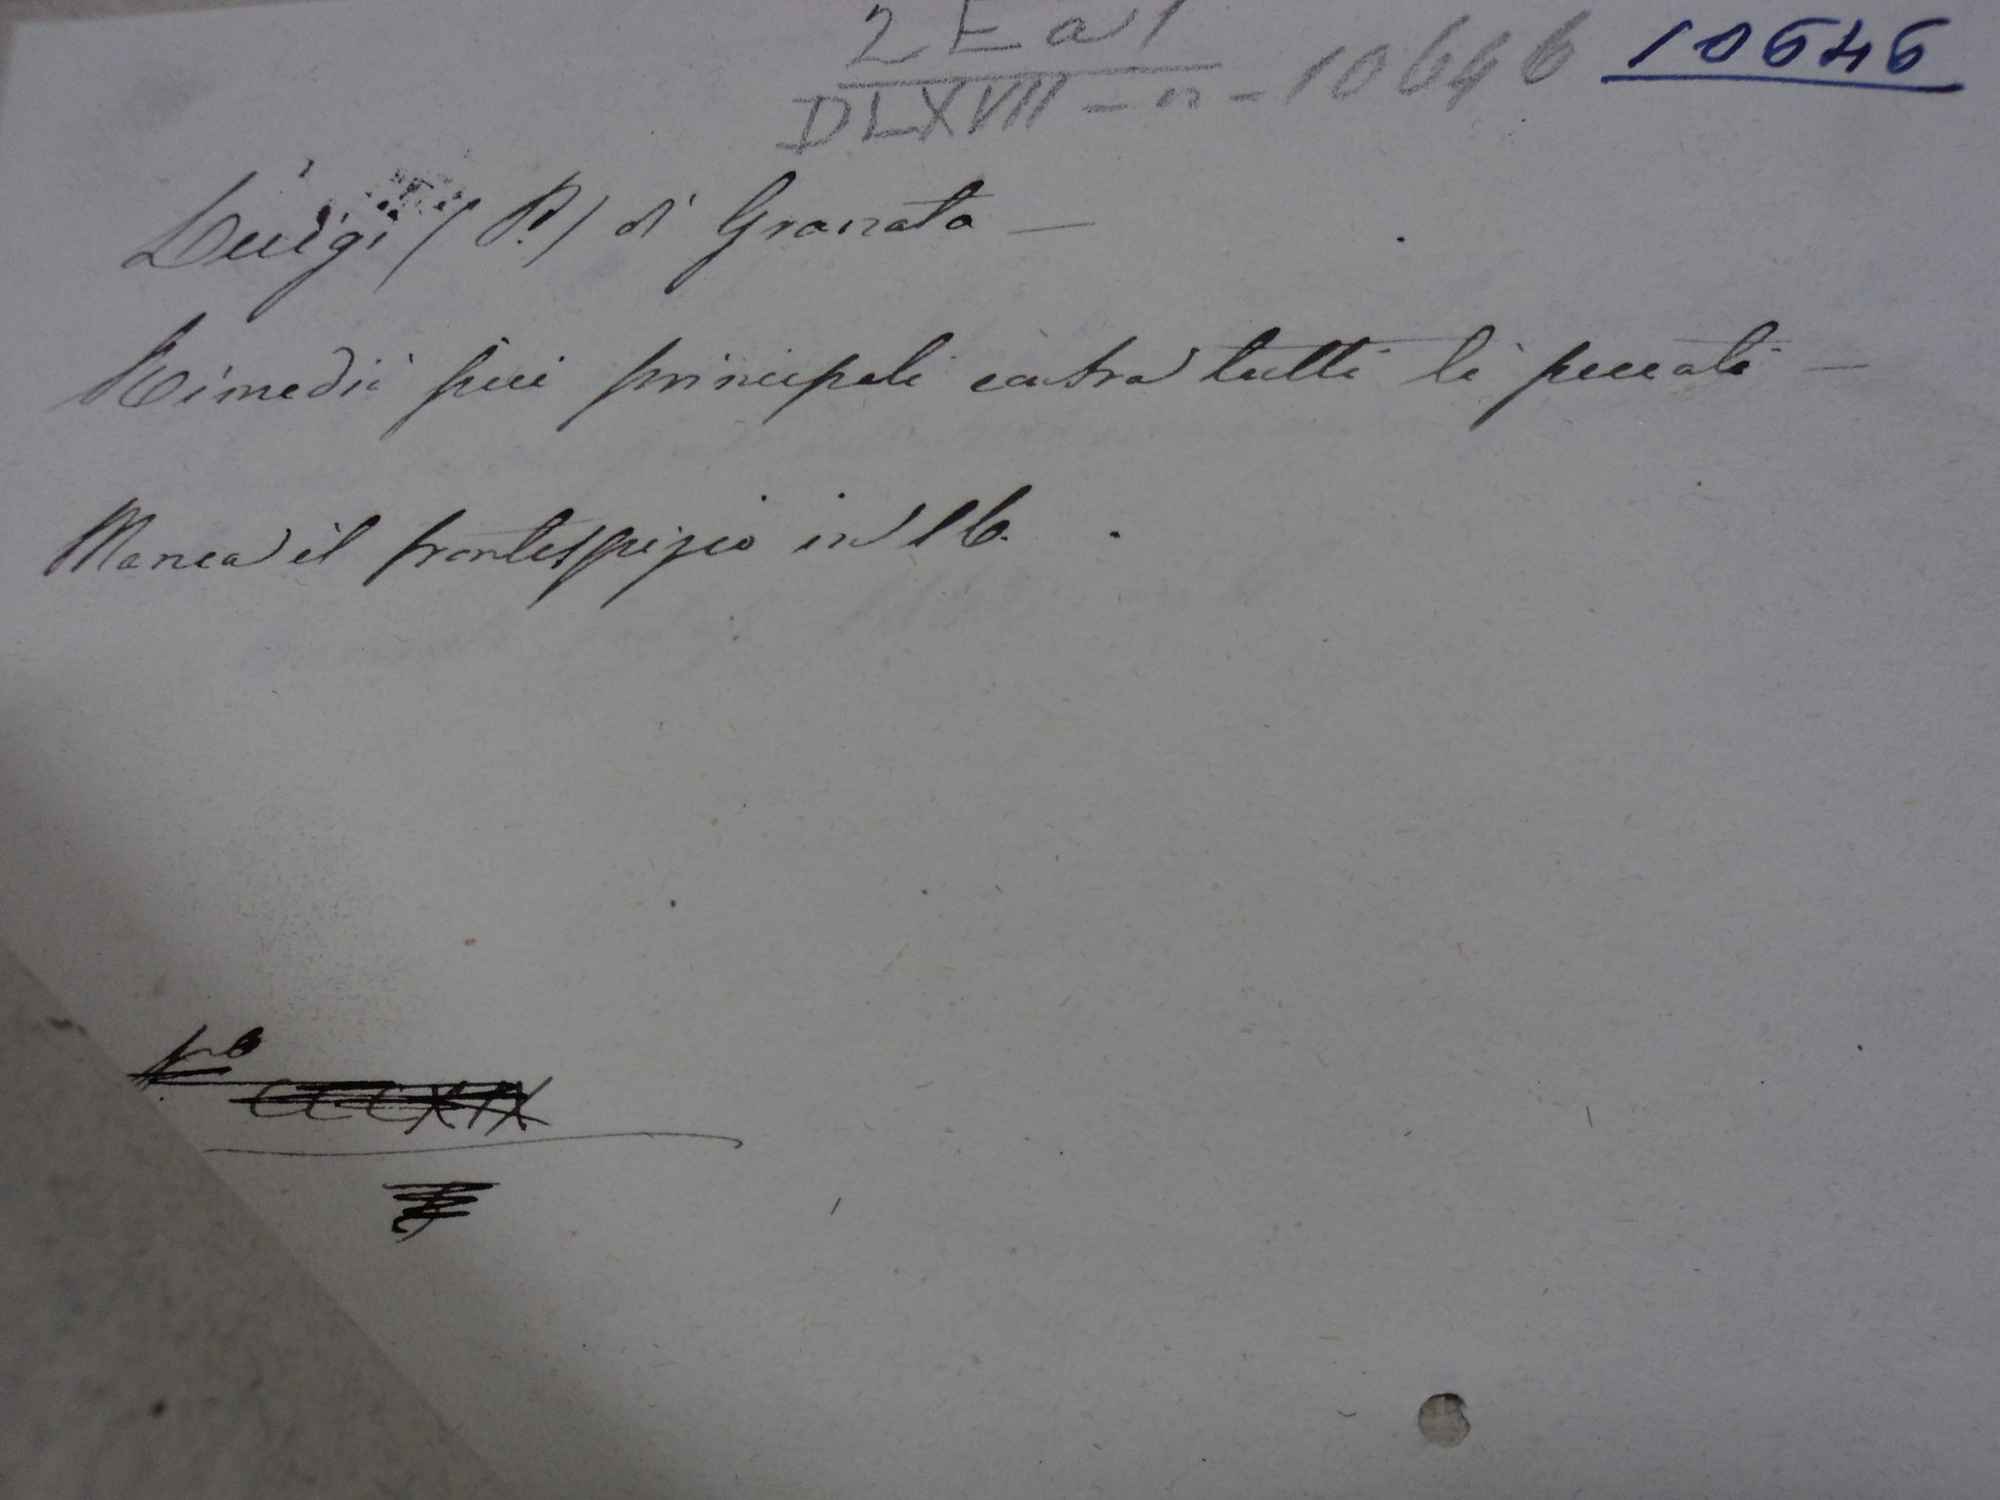 2 E a 1
DLXVII - n - 10646 10646
Luigi (P.) di Granata —
Rimedii più principali contra tutti li peccati —
Manca il frontespizio in 16.
CCCXIX